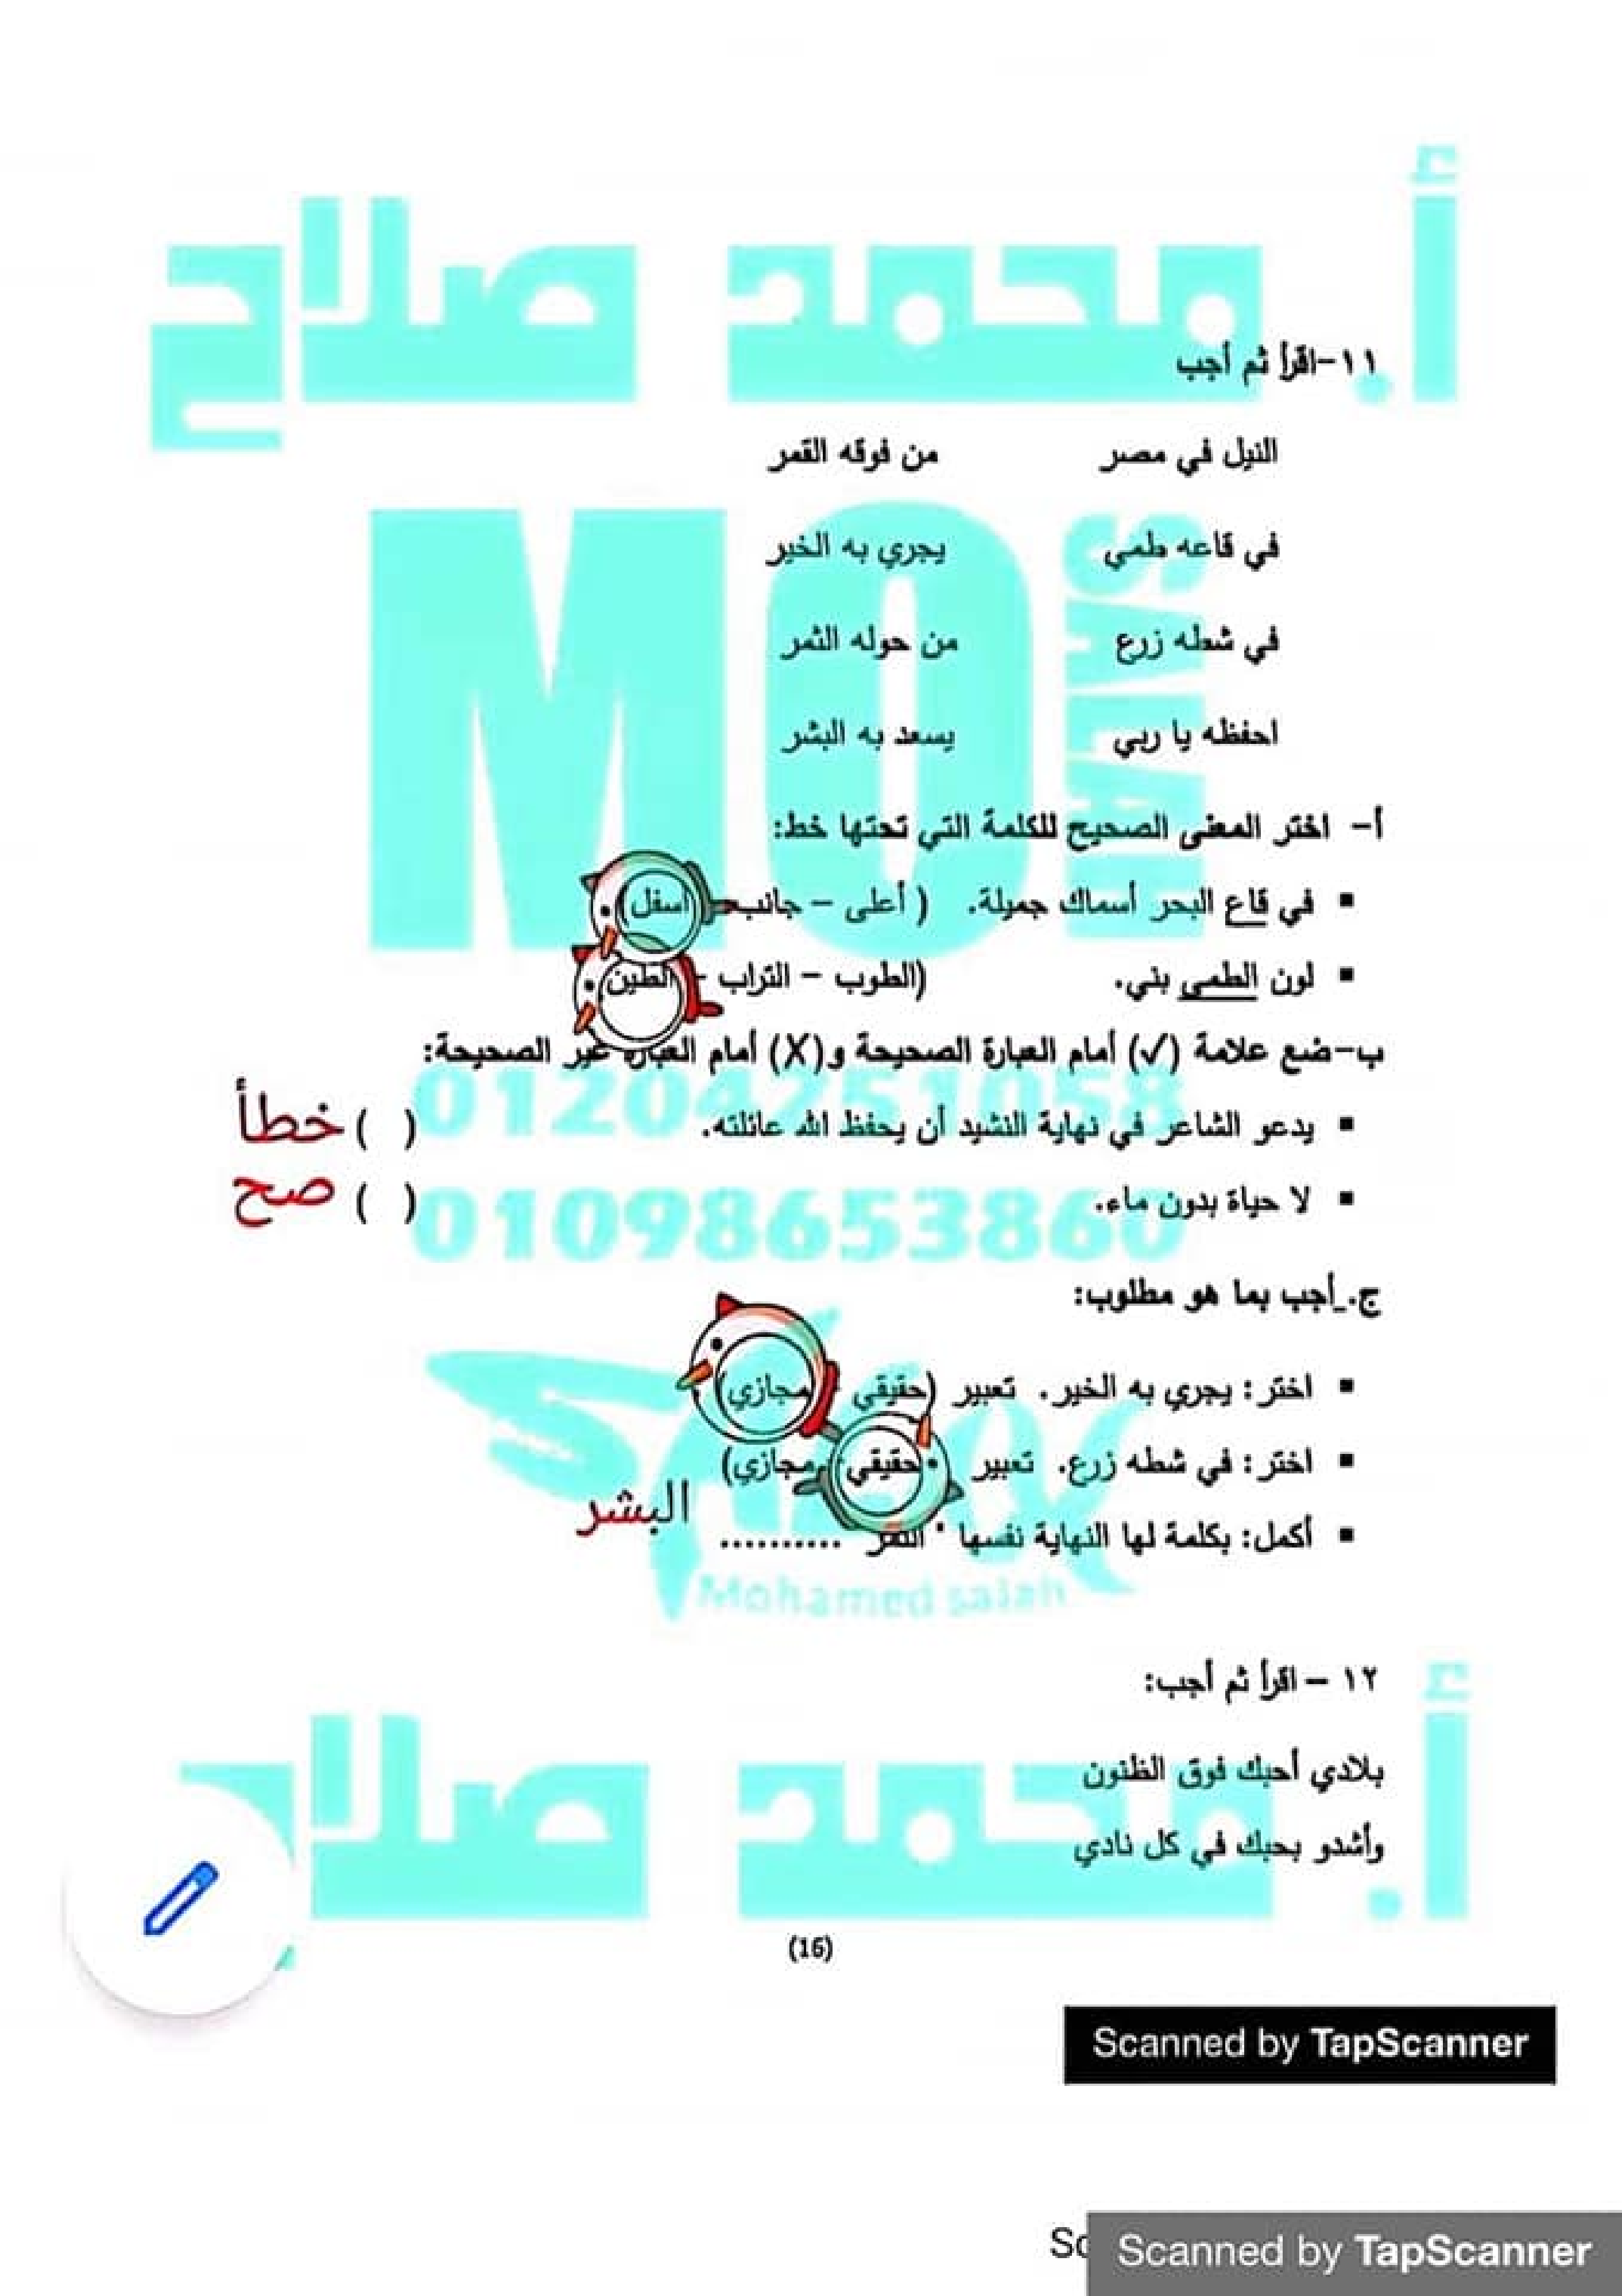 أ. محمد صلاح
١١-اقرأ ثم أجب
النيل في مصر من فوقه القمر
في قاعه طمي يجري به الخير
في شطه زرع من حوله الثمر
احفظه يا ربي يسعد به البشر
MO SALAH
أ- اختر المعنى الصحيح للكلمة التي تحتها خط:
▪ في قاع البحر أسماك جميلة. ( أعلى – جانب – أسفل)
▪ لون الطمي بني. (الطوب – التراب – الطين)
ب-ضع علامة (√) أمام العبارة الصحيحة و(X) أمام العبارة غير الصحيحة:
▪ يدعو الشاعر في نهاية النشيد أن يحفظ الله عائلته. ( ) خطأ
01204251058
▪ لا حياة بدون ماء. ( ) صح
01098653860
ج._أجب بما هو مطلوب:
▪ اختر: يجري به الخير. تعبير (حقيقي مجازي)
▪ اختر: في شطه زرع. تعبير حقيقي مجازي)
▪ أكمل: بكلمة لها النهاية نفسها " الثمر .......... البشر
Mohamed salah
١٢ – اقرأ ثم أجب:
بلادي أحبك فوق الظنون
وأشدو بحبك في كل نادي
أ. محمد صلاح
(16)
Scanned by TapScanner
Sc
Scanned by TapScanner